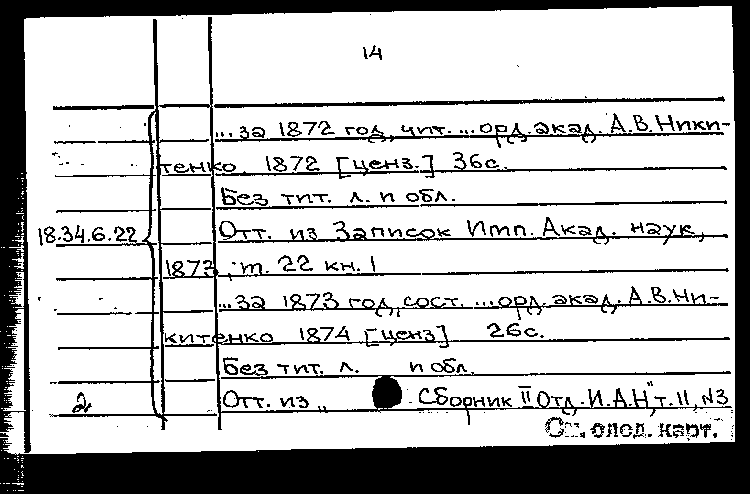 14
...за 1872 год, чит. ...орд. акад. А.В.Ники-
тенко. 1872 [ценз.] 36с.
Без тит. л. и обл.
18.34.6.22
Отт. из Записок Имп. Акад. наук,
1873, т. 22 кн. 1
...за 1873 год, сост. ...орд. акад. А.В.Ни-
китенко 1874 [ценз] 26с.
Без тит. л. и обл.
2
Отт. из „ Сборник II Отд. И.А.Н", т. 11, N3
См. след. карт.